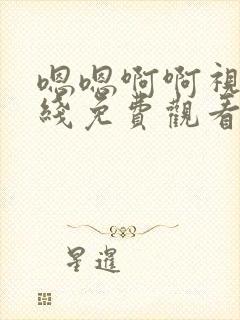 嗯嗯啊啊視
綫免費觀看
星暹